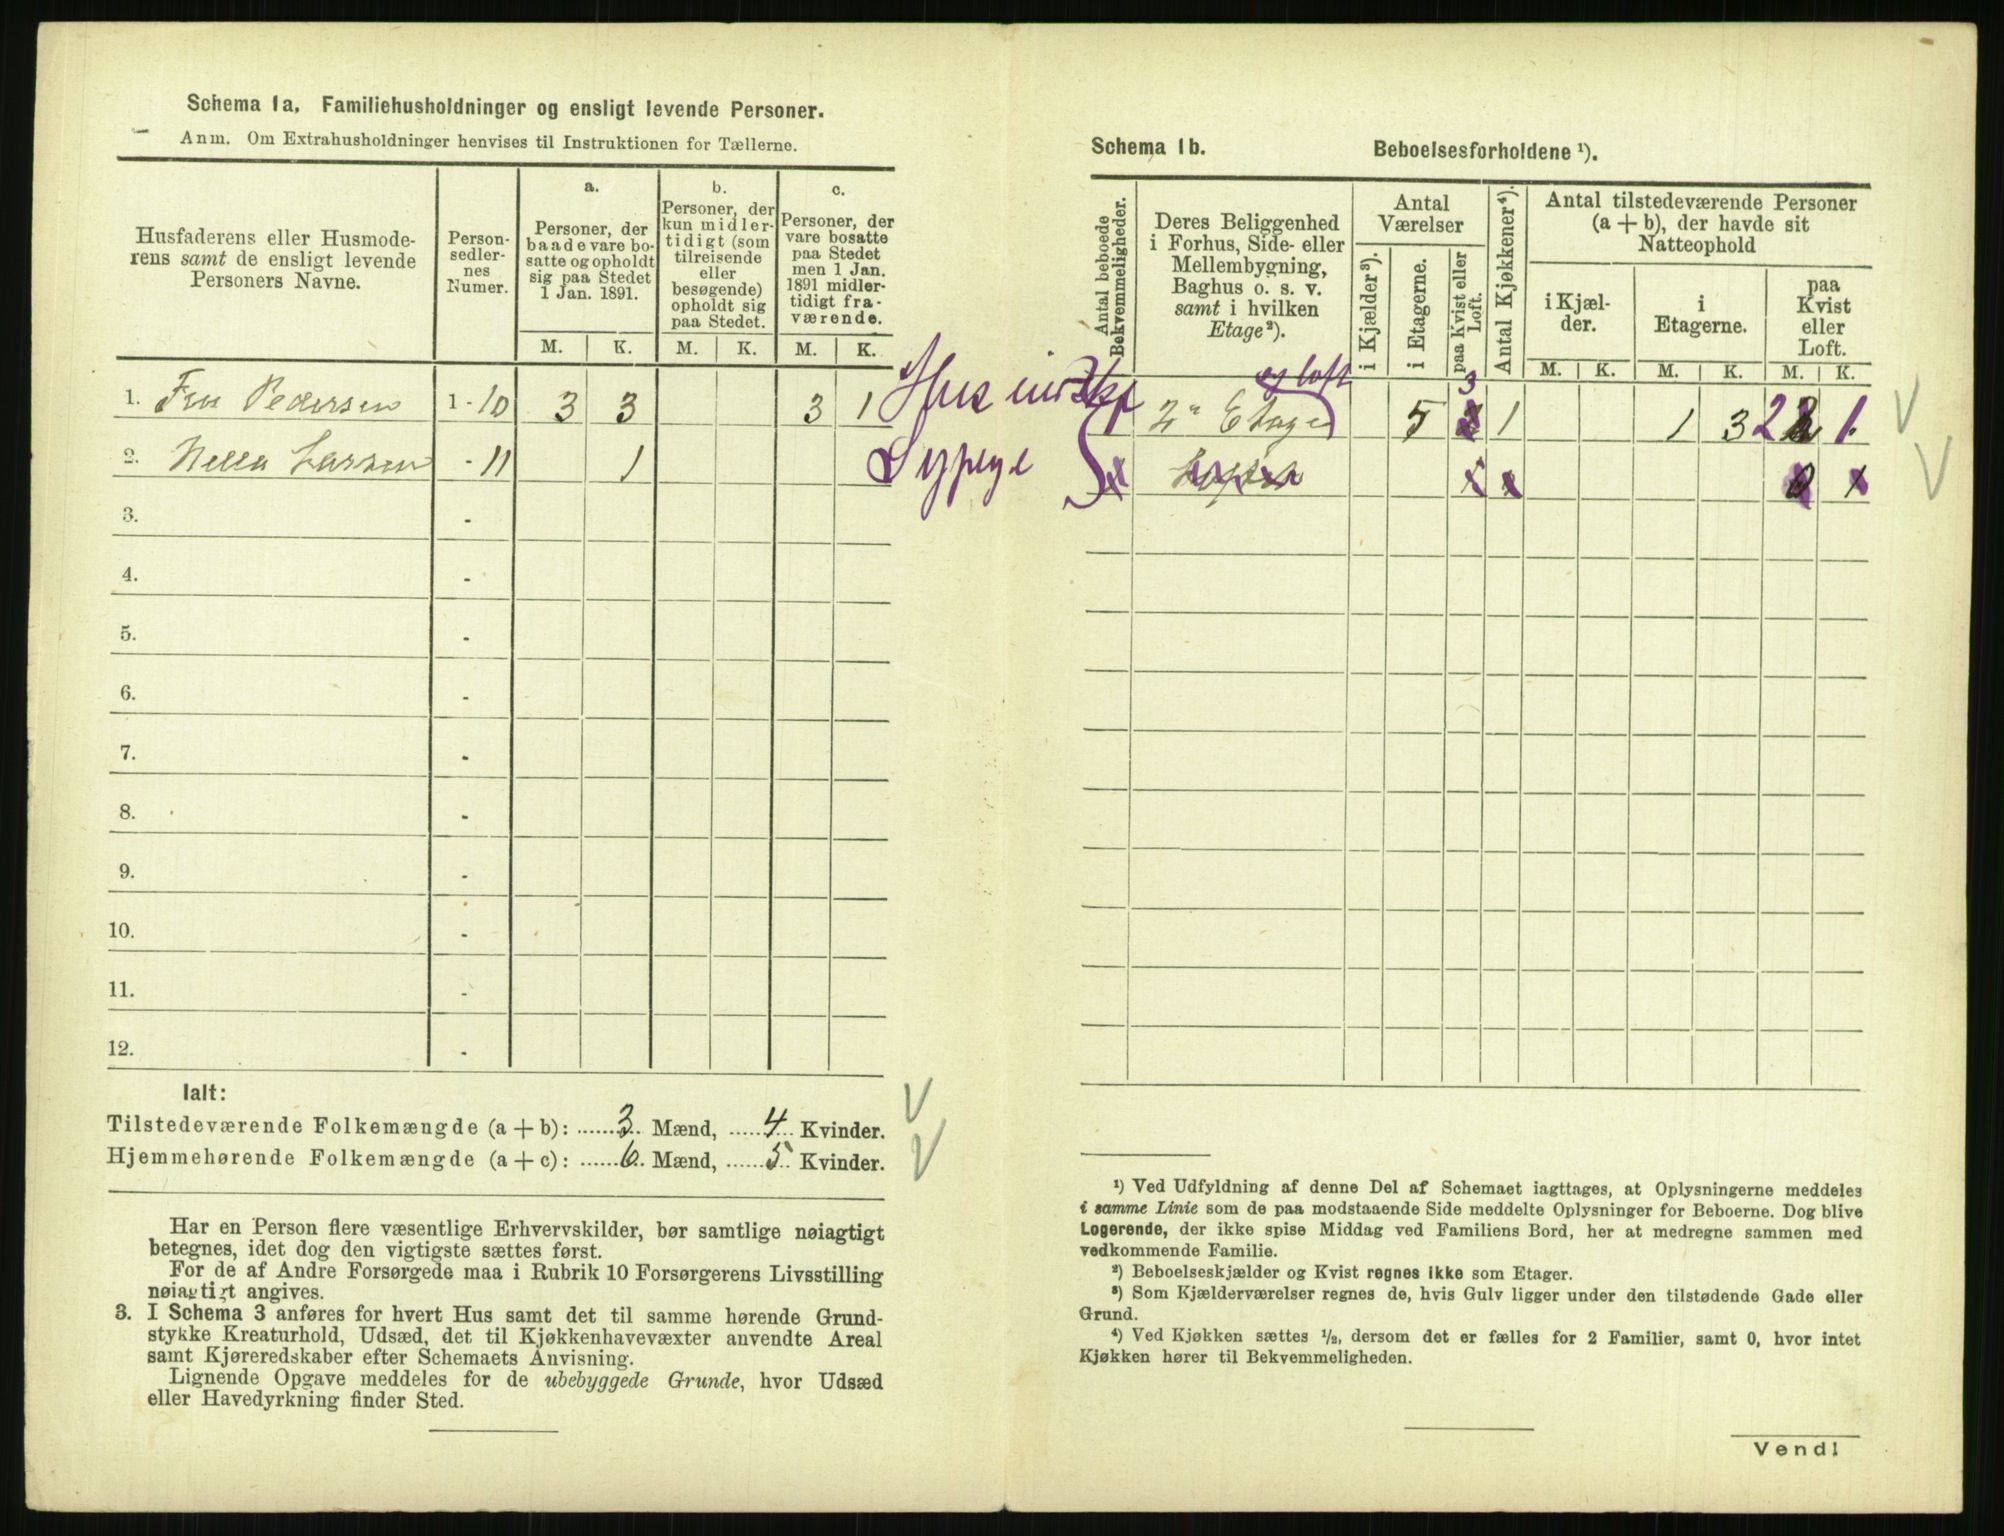 Schema 1a. Familiehusholdninger og ensligt levende Personer.
Anm. Om Extrahusholdninger henvises til Instruktionen for Tællerne.
Husfaderens eller Husmode-
rens samt de ensligt levende
Personers Navne.
Person-
sedler-
nes
Numer.
a.
Personer, der
baade vare bo-
satte og opholdt
sig paa Stedet
1 Jan. 1891.
b.
Personer, der
kun midler-
tidigt (som
tilreisende
eller
besøgende)
opholdt sig
paa Stedet.
c.
Personer, der
vare bosatte
paa Stedet
men 1 Jan.
1891 midler-
tidigt fra-
værende.
M. K. M. K. M. K.
1. Fru Pedersen 1-10 3 3 3 1
2. Larsen - 11 1
3. -
4. -
5. -
6. -
7. -
8. -
9. -
10. -
11. -
12. -
Ialt:
Tilstedeværende Folkemængde (a + b): 3 Mænd, 4 Kvinder.
Hjemmehørende Folkemængde (a + c): 6 Mænd, 5 Kvinder.
Har en Person flere væsentlige Erhvervskilder, bør samtlige nøiagtigt
betegnes, idet dog den vigtigste sættes først.
For de af Andre Forsørgede maa i Rubrik 10 Forsørgerens Livsstilling
nøiagtigt angives.
3. I Schema 3 anføres for hvert Hus samt det til samme hørende Grund-
stykke Kreaturhold, Udsæd, det til Kjøkkenhavevæxter anvendte Areal
samt Kjøreredskaber efter Schemaets Anvisning.
Lignende Opgave meddeles for de ubebyggede Grunde, hvor Udsæd
eller Havedyrkning finder Sted.
Schema 1b. Beboelsesforholdene ¹).
Antal beboede
Bekvemmeligheder.
Deres Beliggenhed
i Forhus, Side- eller
Mellembygning,
Baghus o. s. v.
samt i hvilken
Etage²).
Antal
Værelser
i Kjælder³).
i Etagerne.
paa Kvist eller
Loft.
Antal Kjøkkener⁴).
Antal tilstedeværende Personer
(a + b), der havde sit
Natteophold
i Kjæl-
der.
i
Etagerne.
paa
Kvist
eller
Loft.
M. K. M. K. M. K.
og loft
1 2" Etage 5 3 1 1 3 2 1.
Sypige
¹) Ved Udfyldning af denne Del af Schemaet iagttages, at Oplysningerne meddeles
i samme Linie som de paa modstaaende Side meddelte Oplysninger for Beboerne. Dog blive
Logerende, der ikke spise Middag ved Familiens Bord, her at medregne sammen med
vedkommende Familie.
²) Beboelseskjælder og Kvist regnes ikke som Etager.
³) Som Kjælderværelser regnes de, hvis Gulv ligger under den tilstødende Gade eller
Grund.
⁴) Ved Kjøkken sættes ½, dersom det er fælles for 2 Familier, samt 0, hvor intet
Kjøkken hører til Bekvemmeligheden.
Vend!